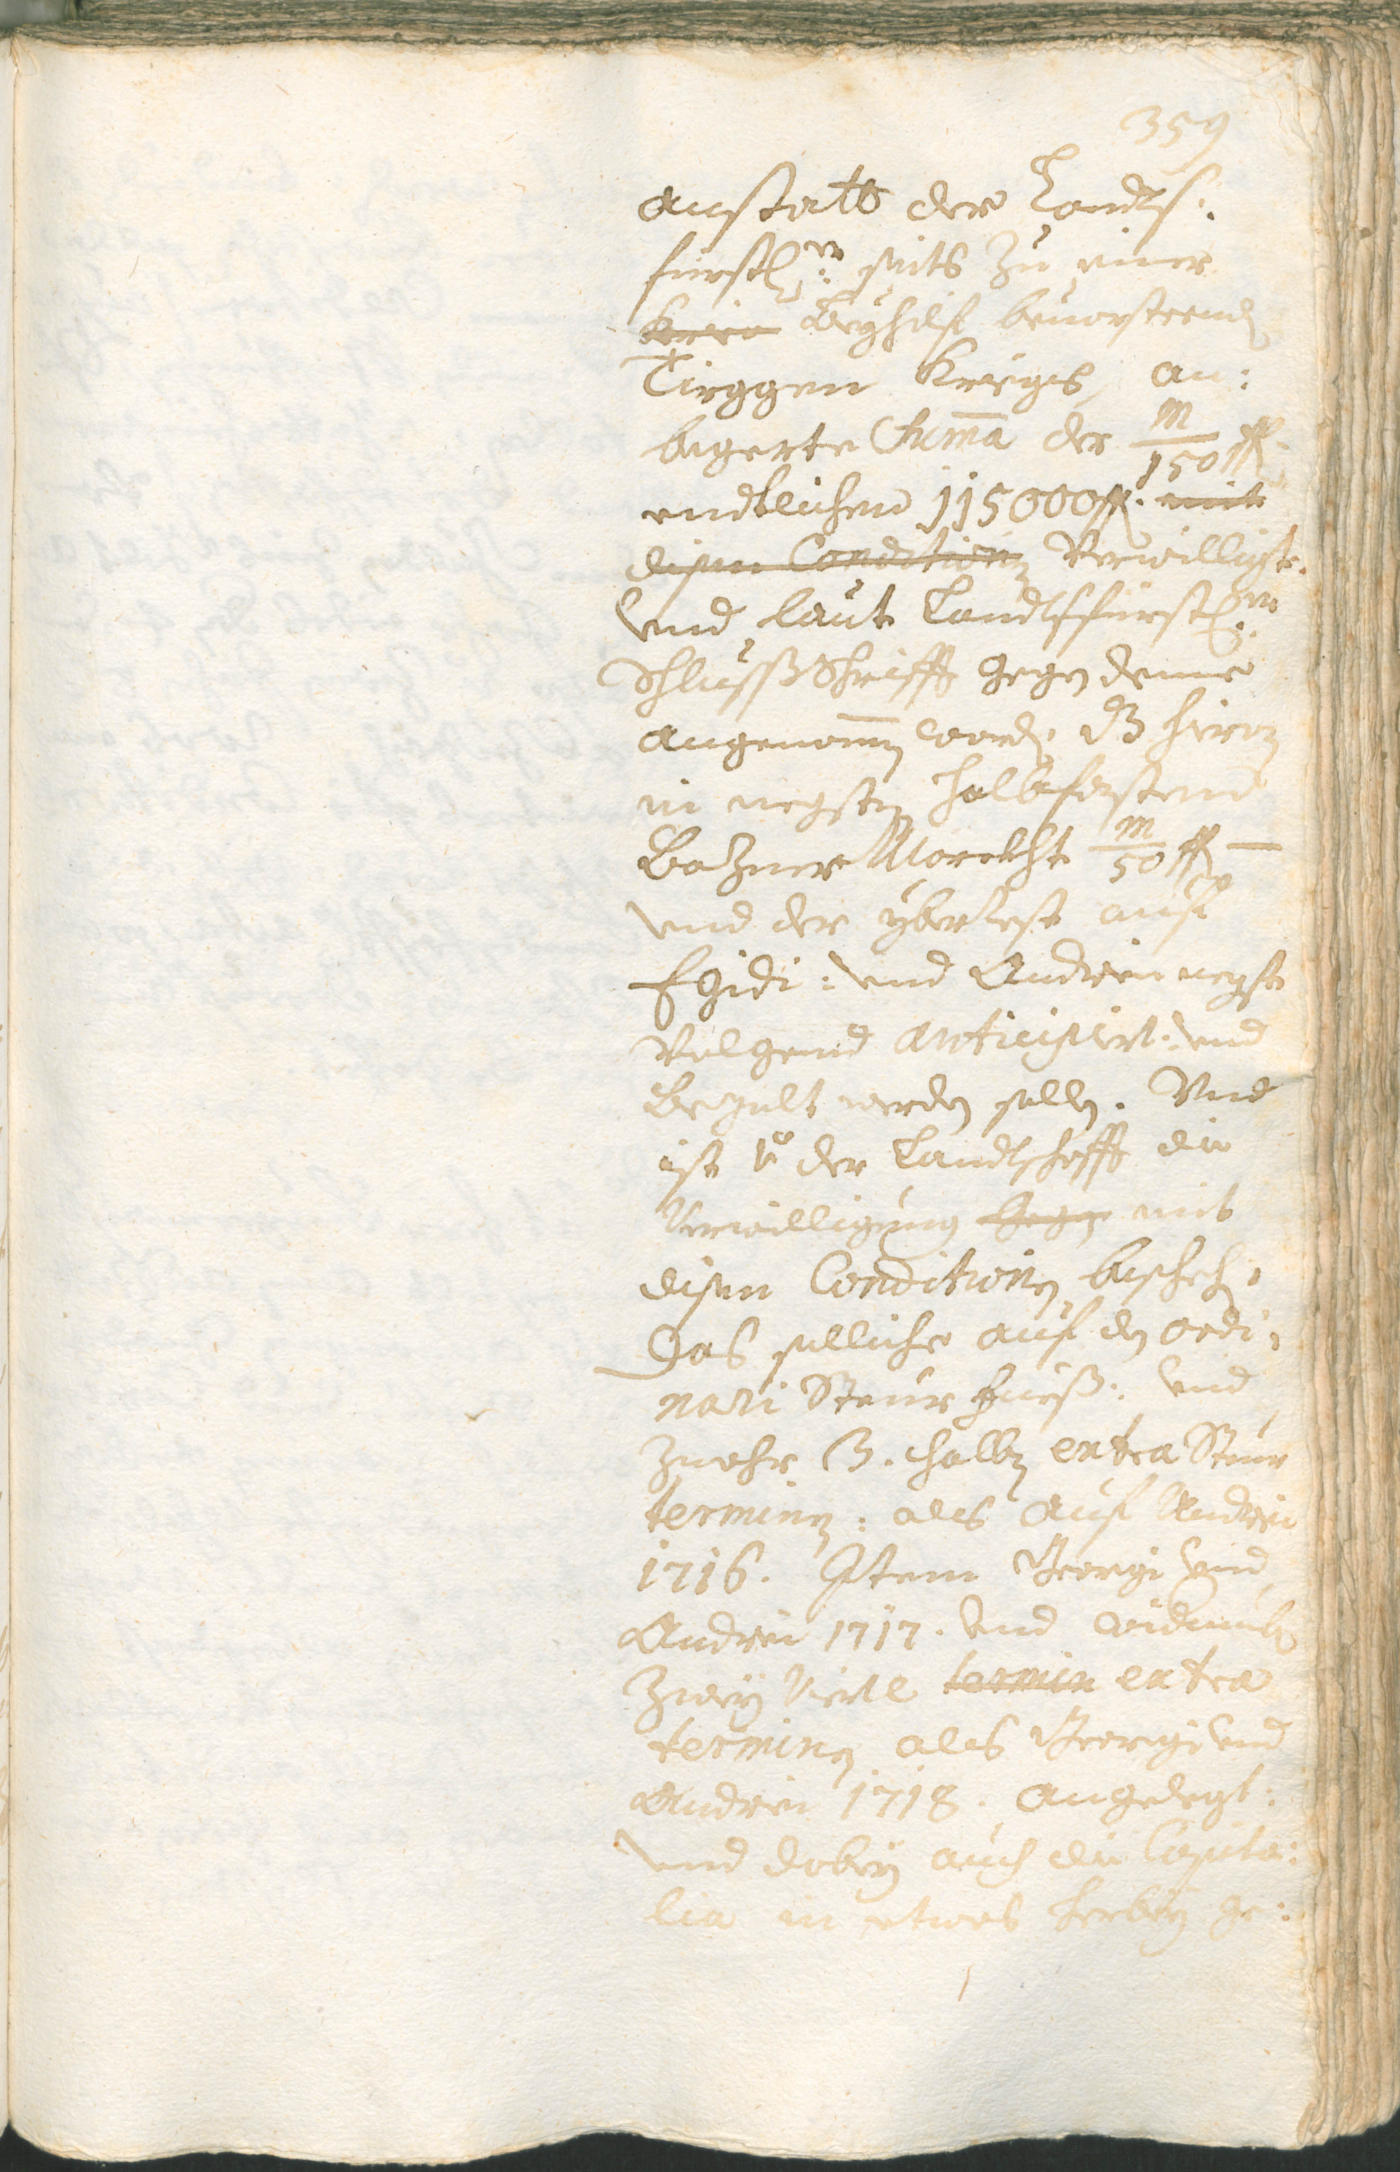 359
anstatt der Landts:
fürstl:er seits zu einer
Beyhilf bevorsteend
Tirggen Kriegs, an:
begerte Summa der m/150 fl.
endtlichen 115000 fl. mit
disen Conditionen Verwilligt.
und laut Landtsfürstl:er
Schlusß Schrifft gegen deme
angenomen word. dz hieran
in negsten halbfasten
Bozner Marckht m/50 fl –
und der yberrest auf
Egidi: und Andreei negst
Volgend anticipirt: und
Bezalt werden sollen. Und
ist vo der Landtschafft die
Verwilligung gegen mit
disen Conditionen bescheh,
Das solliche auf den ordi,
nari Steur fueß: und
zwahr 3. halben extra Steur
terminen: als auf Andreei
1716. Item Georgi und
Andreei 1717. und widumb
zwey Viertl termin extra
terminen als Georgi und
Andreei 1718. angelegt:
und dabey auch die Capita:
lia in etwas herbey ge: